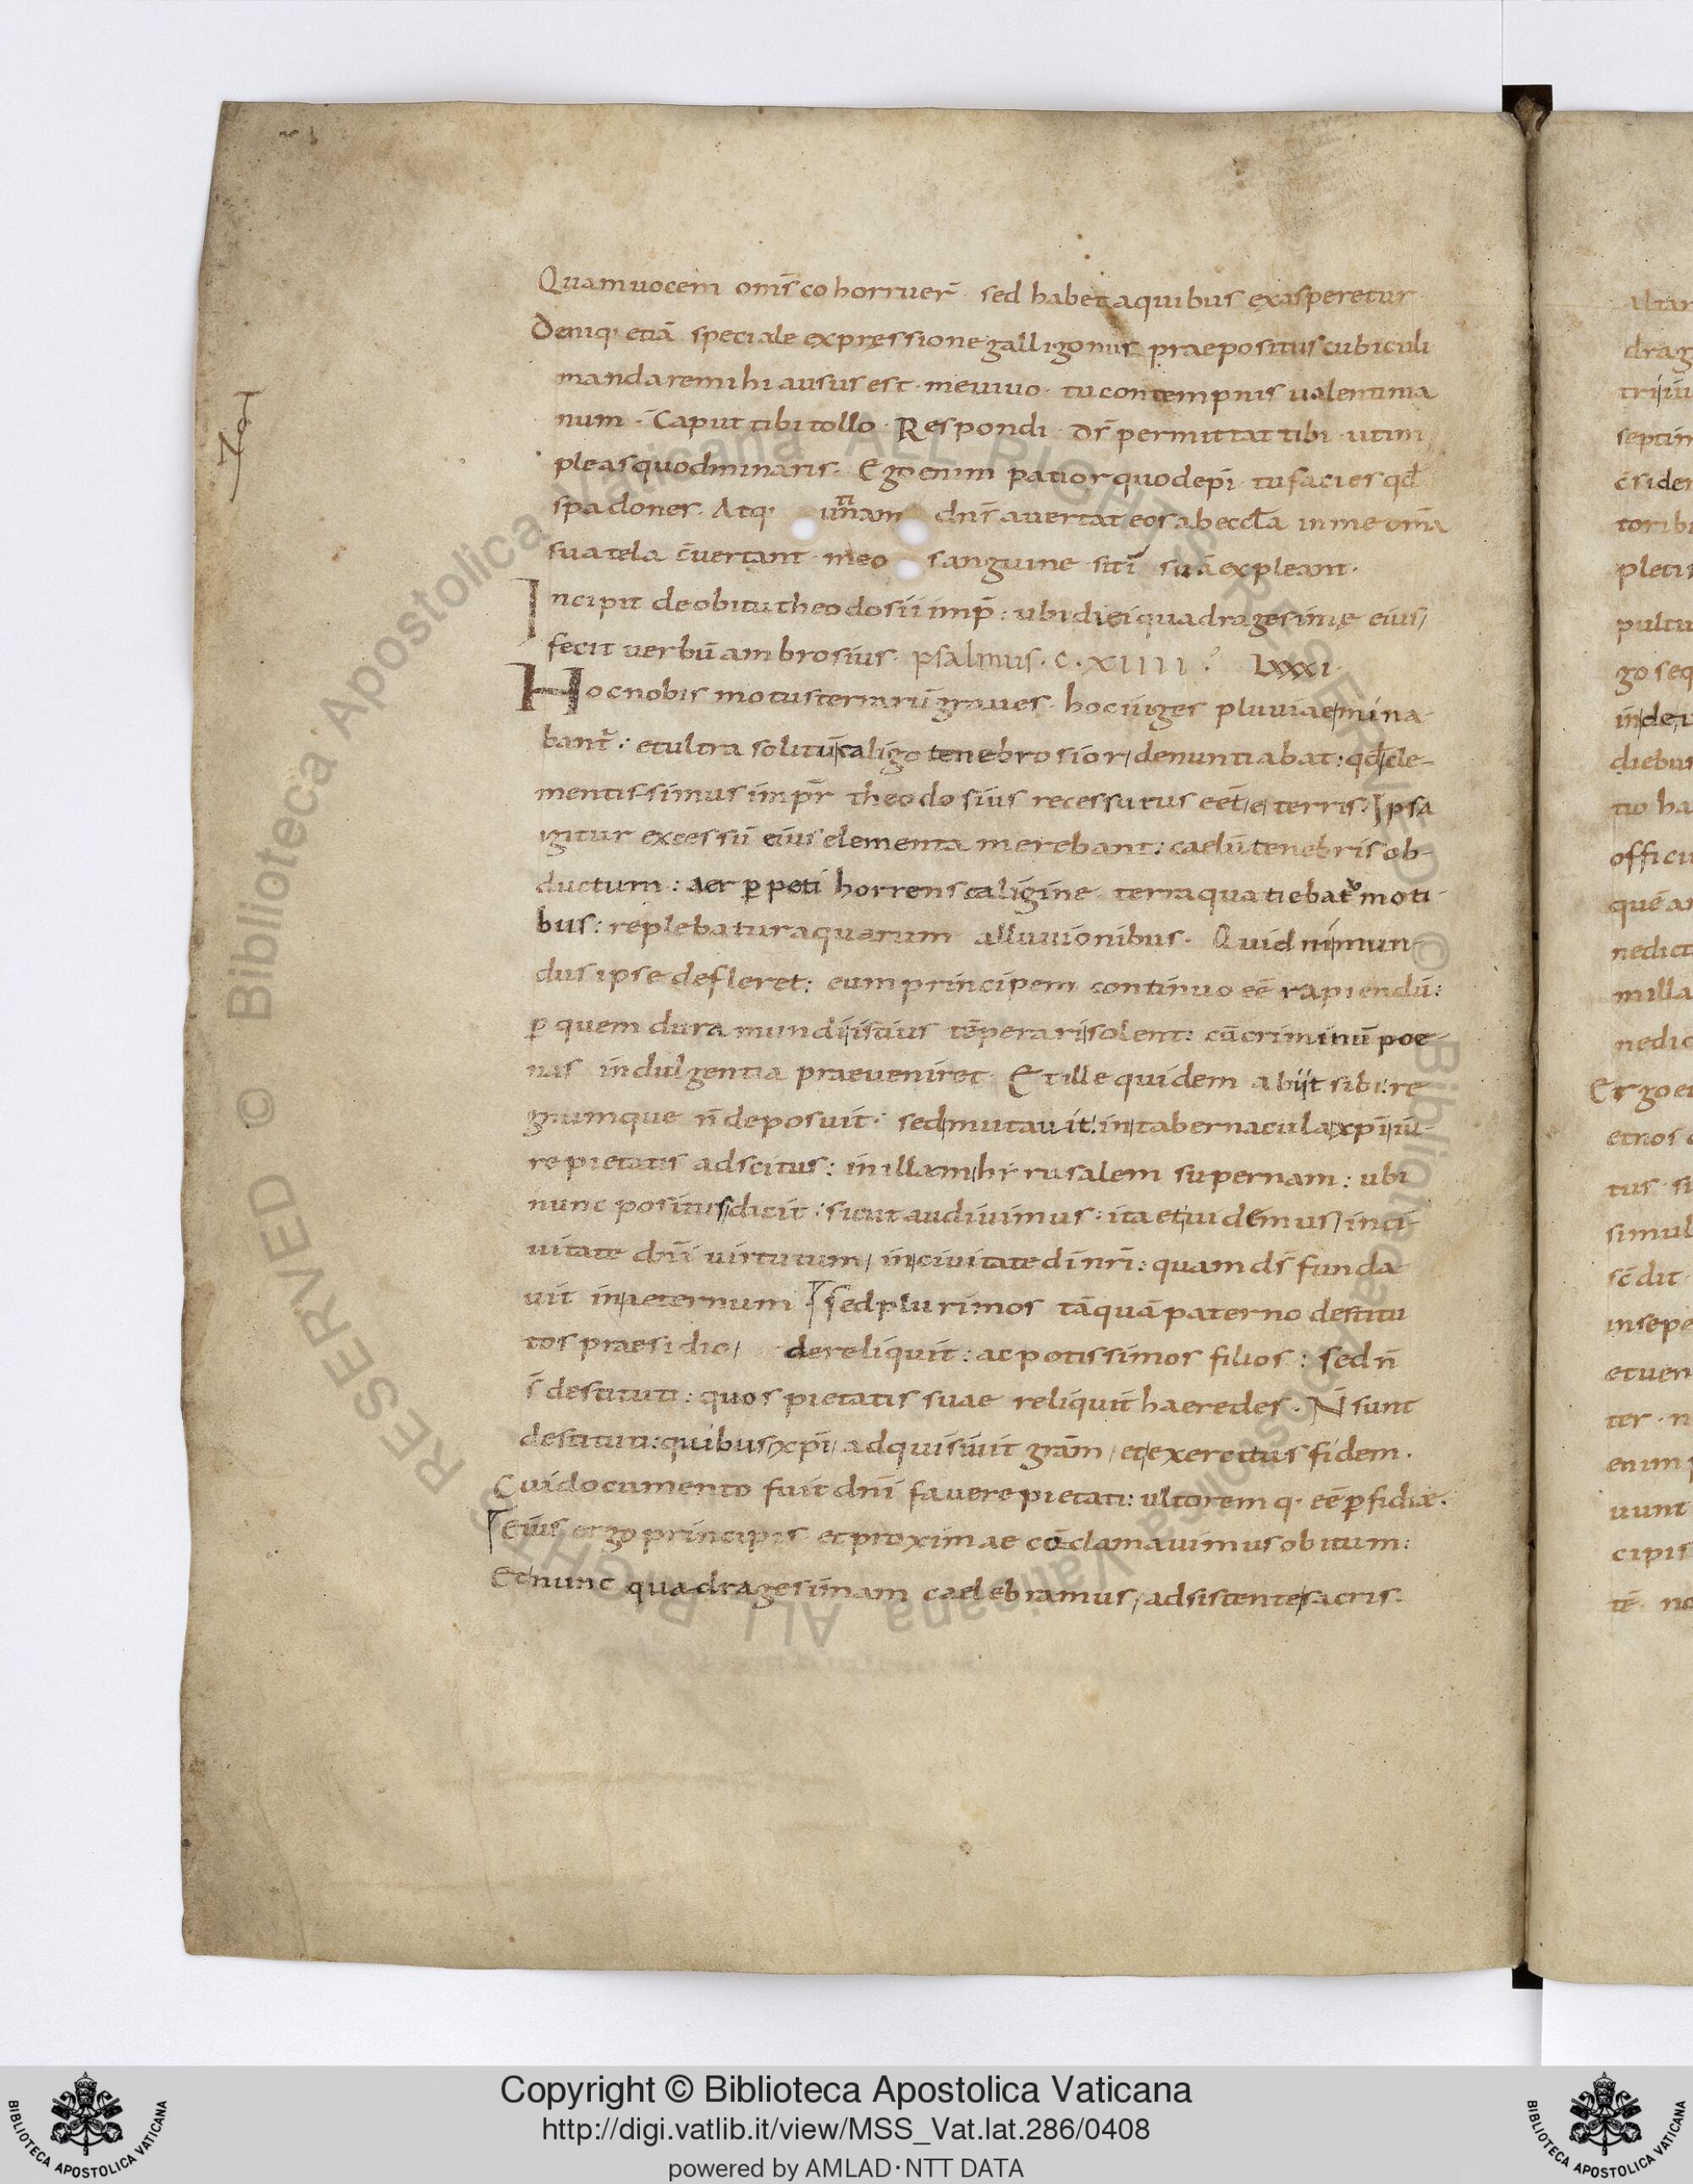 Quam uocem om̅s cohorruer̅ · sed habet a quibus exasperetur
Deniq· etiā speciale expressione galligonus praepositus cubiculi
mandare mihi ausus est · me uiuo · tu contempnis ualentinia
num · Caput tibi tollo · Respondi · ds̅ permittat tibi · ut im
pleas quod minaris · Ego enim patior quod epi̅ tu facies qd̅
spadones · Atq· utinam dn̅s auertat eos ab eccl̅a in me om̅a
sua tela c̅uertant · meo sanguine siti̅ suā expleant ·
Incipit de obitu theodosii imp̅ : ubi diei quadragesimę eius
fecit uerbū ambrosius · psalmus · c · xiiii · Lxxxi ·
Hoc nobis motus terrarū graues · hoc iuges pluuiae mina
bant̅ : et ultra solitū caligo tenebrosior denuntiabat : qd̅ cle-
mentissimus imp̅r theodosius recessurus eēt e terris · Ipsa
igitur excessū eius elementa merebant : caelū tenebris ob-
ductum : aer ꝑpeti horrens caligine · terra quatiebat̅ moti
bus : replebatur aquarum alluuionibus · Quid ni mun-
dus ipse defleret : eum principem continuo eē rapiendū :
ꝑ quem dura mundi istius tēperari solent : cū criminū poe-
nas indulgentia praeueniret · Et ille quidem abiit sibi : re
gnumque n̅ deposuit · sed mutauit : in tabernacula xpi̅ iu-
re pietatis adscitus : in illam hirusalem supernam : ubi
nunc positus dicit : sicut audiuimus · ita et uidemus in ci-
uitate dn̅i uirtutum in ciuitate di̅ nr̅i : quam ds̅ funda
uit in aeternum · sed plurimos tāquā paterno destitu
tos praesidio dereliquit : ac potissimos filios : sed n̅
s̅ destituti : quos pietatis suae reliquit haeredes · N̅ sunt
destituti : quibus xpi̅ adquisiuit grām et exercitus fidem ·
Cui documento fuit dn̅i fauere pietati : ultorem q· eē ꝑfidiae ·
Eius ergo principis et proximae cōclamauimus obitum :
Et nunc quadragesimam caelebramus adsistente sacris ·
Copyright © Biblioteca Apostolica Vaticana
http://digi.vatlib.it/view/MSS_Vat.lat.286/0408
powered by AMLAD·NTT DATA